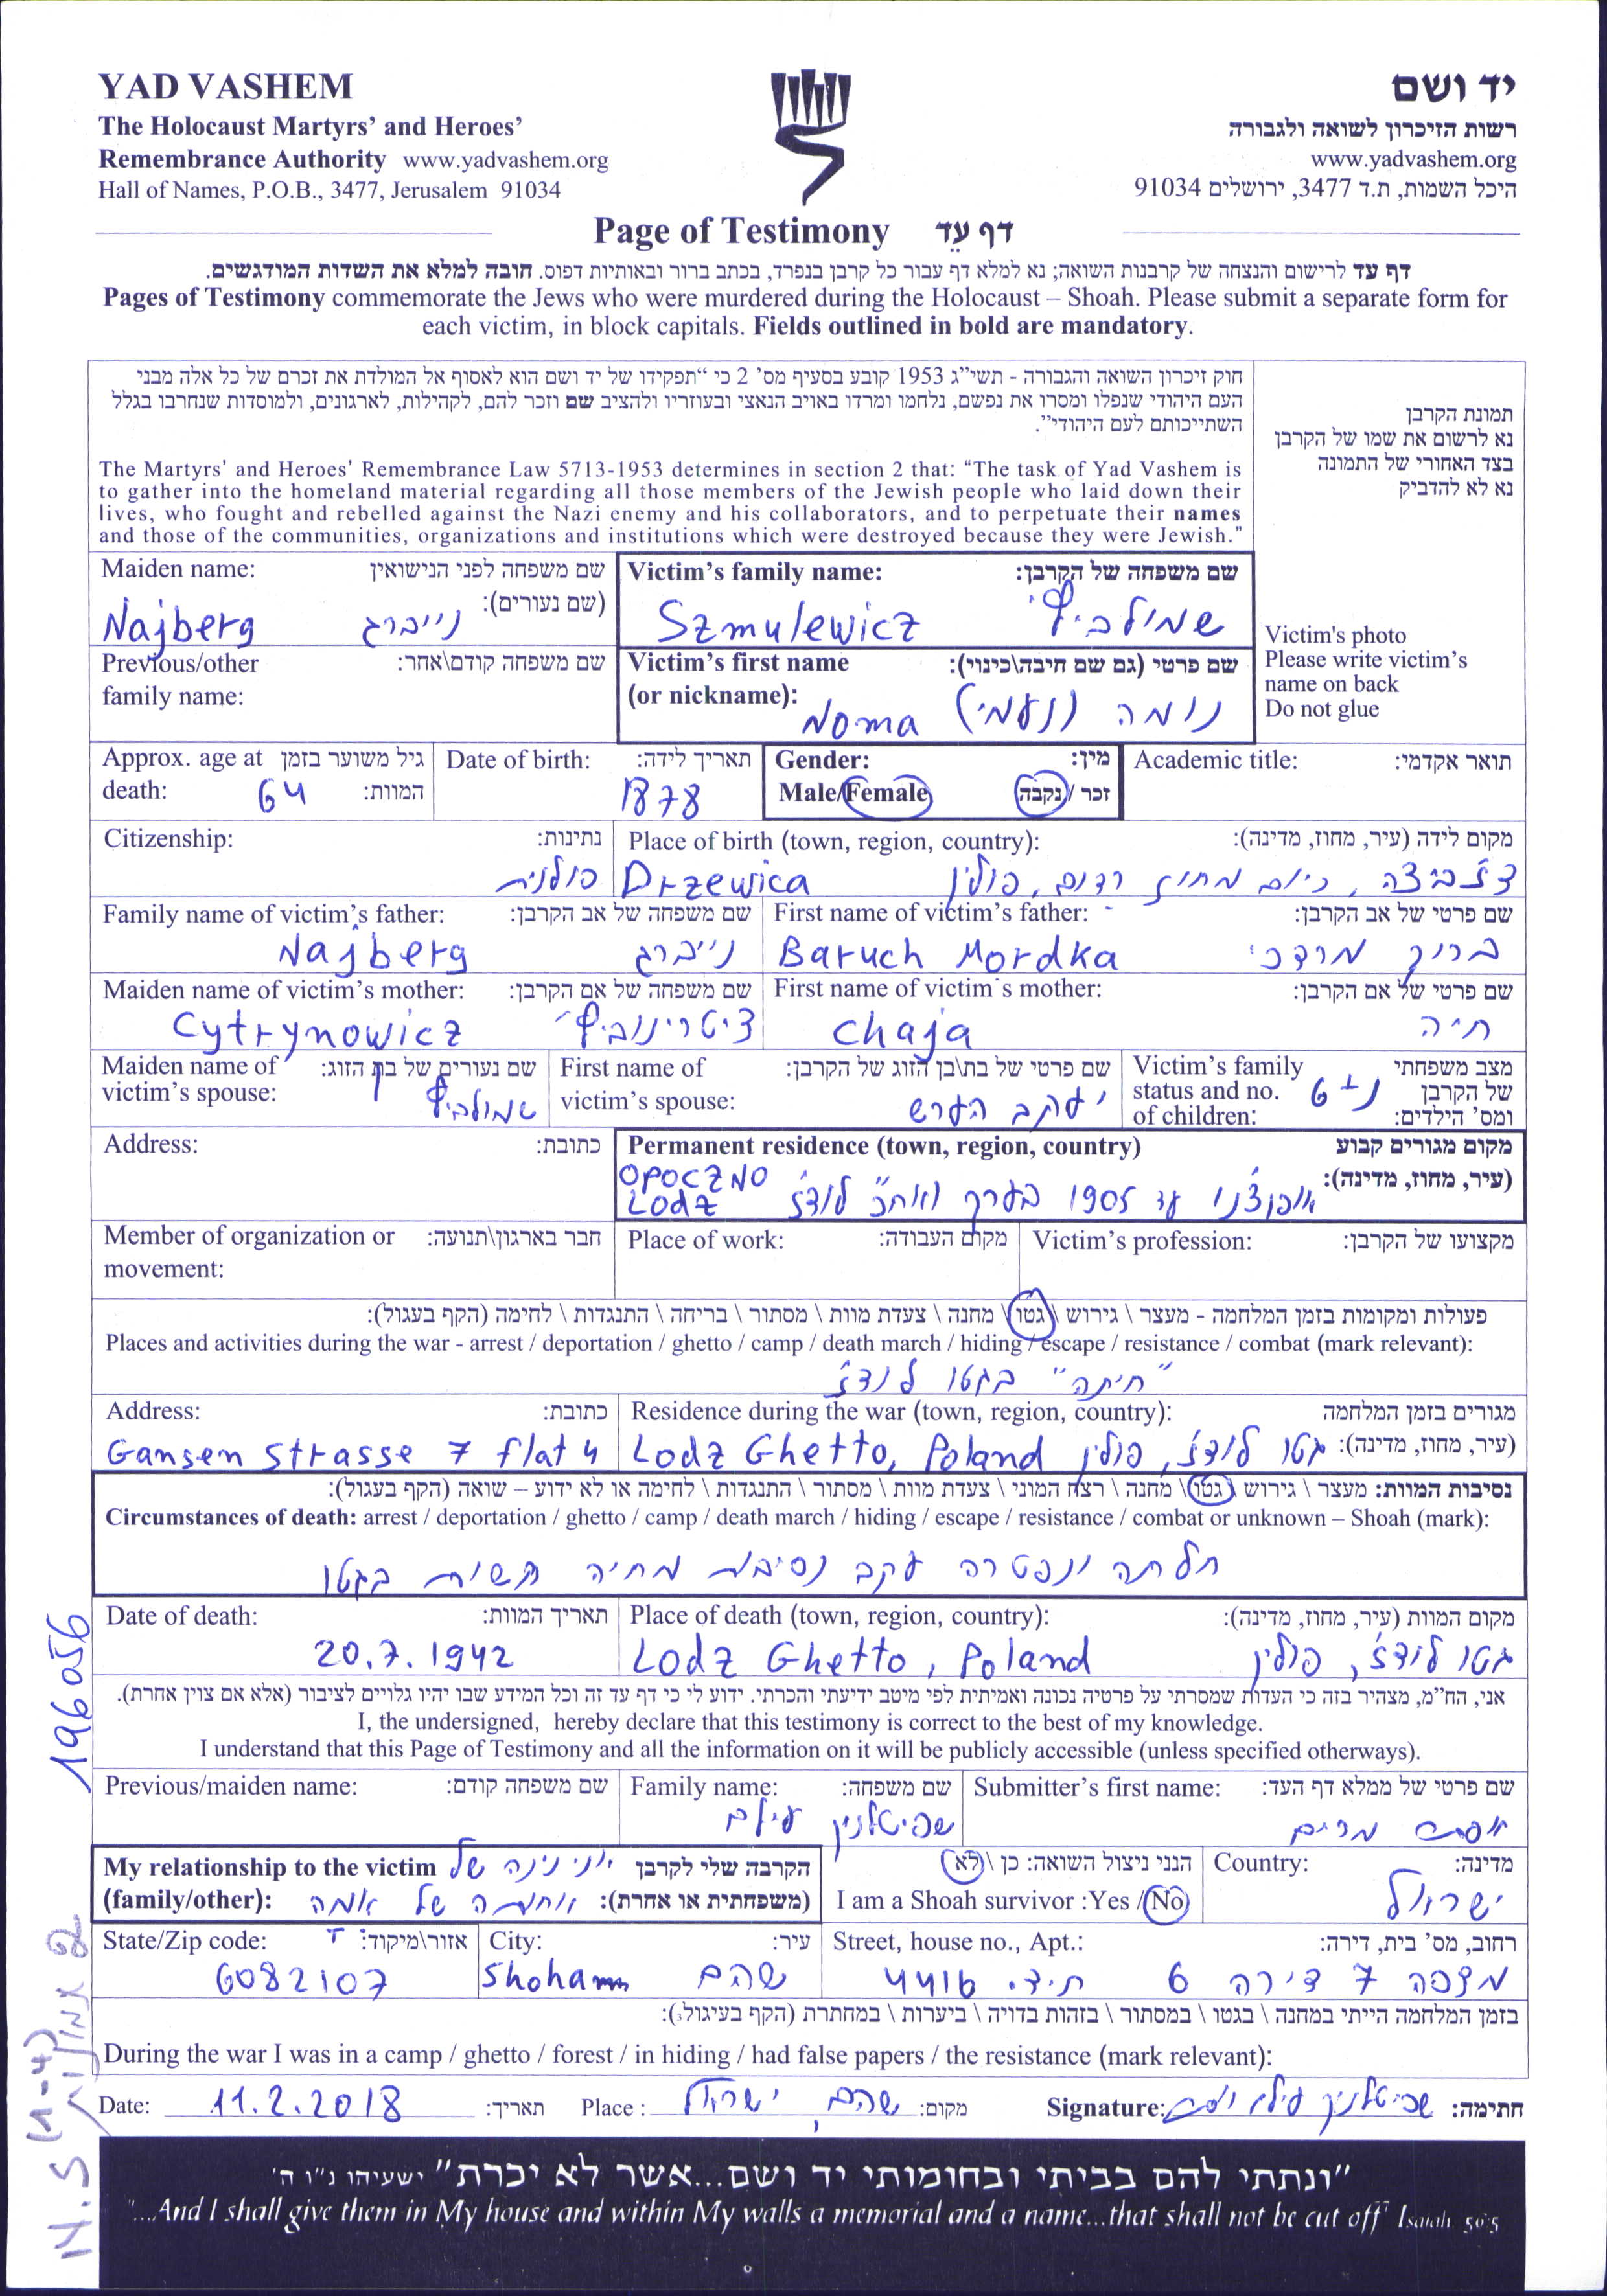 YAD VASHEM
The Holocaust Martyrs' and Heroes'
Remembrance Authority www.yadvashem.org
Hall of Names, P.O.B., 3477, Jerusalem 91034
יד ושם
רשות הזיכרון לשואה ולגבורה
www.yadvashem.org
היכל השמות, ת.ד 3477, ירושלים 91034
Page of Testimony דף עֵד
דף עד לרישום והנצחה של קרבנות השואה; נא למלא דף עבור כל קרבן בנפרד, בכתב ברור ובאותיות דפוס. חובה למלא את השדות המודגשים.
Pages of Testimony commemorate the Jews who were murdered during the Holocaust – Shoah. Please submit a separate form for
each victim, in block capitals. Fields outlined in bold are mandatory.
חוק זיכרון השואה והגבורה - תשי"ג 1953 קובע בסעיף מס' 2 כי "תפקידו של יד ושם הוא לאסוף אל המולדת את זכרם של כל אלה מבני
העם היהודי שנפלו ומסרו את נפשם, נלחמו ומרדו באויב הנאצי ובעוזריו ולהציב שם וזכר להם, לקהילות, לארגונים, ולמוסדות שנחרבו בגלל
השתייכותם לעם היהודי".
The Martyrs' and Heroes' Remembrance Law 5713-1953 determines in section 2 that: "The task of Yad Vashem is
to gather into the homeland material regarding all those members of the Jewish people who laid down their
lives, who fought and rebelled against the Nazi enemy and his collaborators, and to perpetuate their names
and those of the communities, organizations and institutions which were destroyed because they were Jewish."
תמונת הקרבן
נא לרשום את שמו של הקרבן
בצד האחורי של התמונה
נא לא להדביק
Victim's photo
Please write victim's
name on back
Do not glue
Maiden name: שם משפחה לפני הנישואין
(שם נעורים):
Najberg נייברג
Victim's family name: שם משפחה של הקרבן:
Szmulewicz שמולביץ'
Previous/other שם משפחה קודם\אחר:
family name:
Victim's first name שם פרטי (גם שם חיבה\כינוי):
(or nickname):
Noma נומה (נעמי)
Approx. age at גיל משוער בזמן
death: 64 המוות:
Date of birth: תאריך לידה:
1878
Gender: מין:
Male/Female זכר / נקבה
Academic title: תואר אקדמי:
Citizenship: נתינות:
פולנית
Place of birth (town, region, country): מקום לידה (עיר, מחוז, מדינה):
Drzewica כיום מחוז רדום, פולין
Family name of victim's father: שם משפחה של אב הקרבן:
Najberg נייברג
First name of victim's father: שם פרטי של אב הקרבן:
Baruch Mordka ברוך מרדכי
Maiden name of victim's mother: שם משפחה של אם הקרבן:
Cytrynowicz ציטרינוביץ'
First name of victim's mother: שם פרטי של אם הקרבן:
Chaja חיה
Maiden name of שם נעורים של בת הזוג:
victim's spouse: שמולביץ'
First name of שם פרטי של בת\בן הזוג של הקרבן:
victim's spouse: יעקב הערש
Victim's family מצב משפחתי
status and no. נ+6 של הקרבן
of children: ומס' הילדים:
Address: כתובת:
Permanent residence (town, region, country) מקום מגורים קבוע
(עיר, מחוז, מדינה):
OPOCZNO
LODZ אופוצ'נו עד 1905 בערך ואח"כ לודז'
Member of organization or חבר בארגון\תנועה:
movement:
Place of work: מקום העבודה:
Victim's profession: מקצועו של הקרבן:
פעולות ומקומות בזמן המלחמה - מעצר \ גירוש \ גטו \ מחנה \ צעדת מוות \ מסתור \ בריחה \ התנגדות \ לחימה (הקף בעגול):
Places and activities during the war - arrest / deportation / ghetto / camp / death march / hiding / escape / resistance / combat (mark relevant):
"חיתה" בגטו לודז'
Address: כתובת:
Gansen strasse 7 flat 4
Residence during the war (town, region, country): מגורים בזמן המלחמה
(עיר, מחוז, מדינה):
Lodz Ghetto, Poland גטו לודז', פולין
נסיבות המוות: מעצר \ גירוש \ גטו \ מחנה \ רצח המוני \ צעדת מוות \ מסתור \ התנגדות \ לחימה או לא ידוע – שואה (הקף בעגול):
Circumstances of death: arrest / deportation / ghetto / camp / death march / hiding / escape / resistance / combat or unknown – Shoah (mark):
חלתה ונפטרה עקב נסיבות מחיה קשות בגטו
Date of death: תאריך המוות:
20.7.1942
Place of death (town, region, country): מקום המוות (עיר, מחוז, מדינה):
Lodz Ghetto, Poland גטו לודז', פולין
אני, הח"מ, מצהיר בזה כי העדות שמסרתי על פרטיה נכונה ואמיתית לפי מיטב ידיעתי והכרתי. ידוע לי כי דף עד זה וכל המידע שבו יהיו גלויים לציבור (אלא אם צוין אחרת).
I, the undersigned, hereby declare that this testimony is correct to the best of my knowledge.
I understand that this Page of Testimony and all the information on it will be publicly accessible (unless specified otherways).
Previous/maiden name: שם משפחה קודם:
Family name: שם משפחה:
שפיטלניק עילם
Submitter's first name: שם פרטי של ממלא דף העד:
מרים
My relationship to the victim הקרבה שלי לקרבן
(family/other): (משפחתית או אחרת):
אני נינה של
אחותה של אמה
הנני ניצול השואה: כן \ לא
I am a Shoah survivor :Yes / No
Country: מדינה:
ישראל
State/Zip code: אזור\מיקוד:
6082107
City: עיר:
Shoham שהם
Street, house no., Apt.: רחוב, מס' בית, דירה:
מצפה 7 דירה 6 ת.ד. 4416
בזמן המלחמה הייתי במחנה \ בגטו \ במסתור \ בזהות בדויה \ ביערות \ במחתרת (הקף בעיגול):
During the war I was in a camp / ghetto / forest / in hiding / had false papers / the resistance (mark relevant):
Date: 11.2.2018 תאריך:
Place : שהם, ישראל מקום:
Signature: חתימה:
"ונתתי להם בביתי ובחומותי יד ושם...אשר לא יכרת" ישעיהו נ"ו ה'
"...And I shall give them in My house and within My walls a memorial and a name...that shall not be cut off" Isaiah 56:5
196056